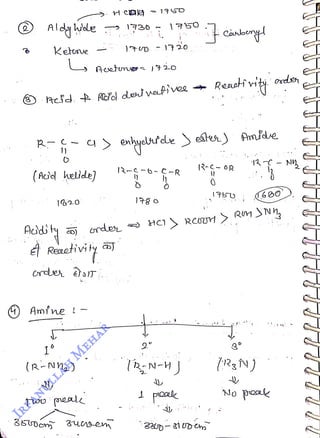 → HCHO - 1750
② Aldyhide → 1730 - 1750
Carbonyl
& Ketone - 1700 - 1720
→ Acetone = 1720
③ Acid & Acid derivatives → Reactivity order
R - C - Cl > enhydride > ester > Amide
O
(Acid helide) R-C-O-C-R R-C-OR R-C-NH₂
O O O O
1820 1780 1750 1680
Acidity का order ⇒ HCl > RCOOH > ROH > NH₃
ही Reactivity का
order होगा
④ Amine : -
1° 2° 3°
(R-NH₂) (R₂-N-H) (R₃N)
two peak 1 peak No peak
3500cm 3400cm 3300-3100cm
IRFANULLAH MEHAR